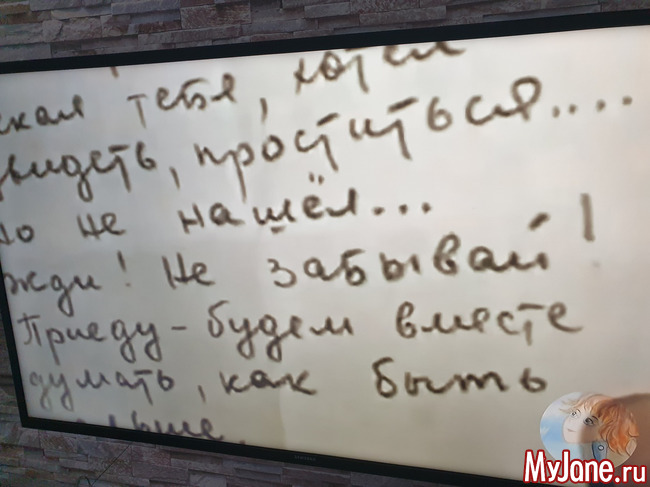 скал тебя, хотел
видеть, проститься....
но не нашёл...
жди! Не забывай!
Приеду - будем вместе
думать, как быть
MyJane.ru